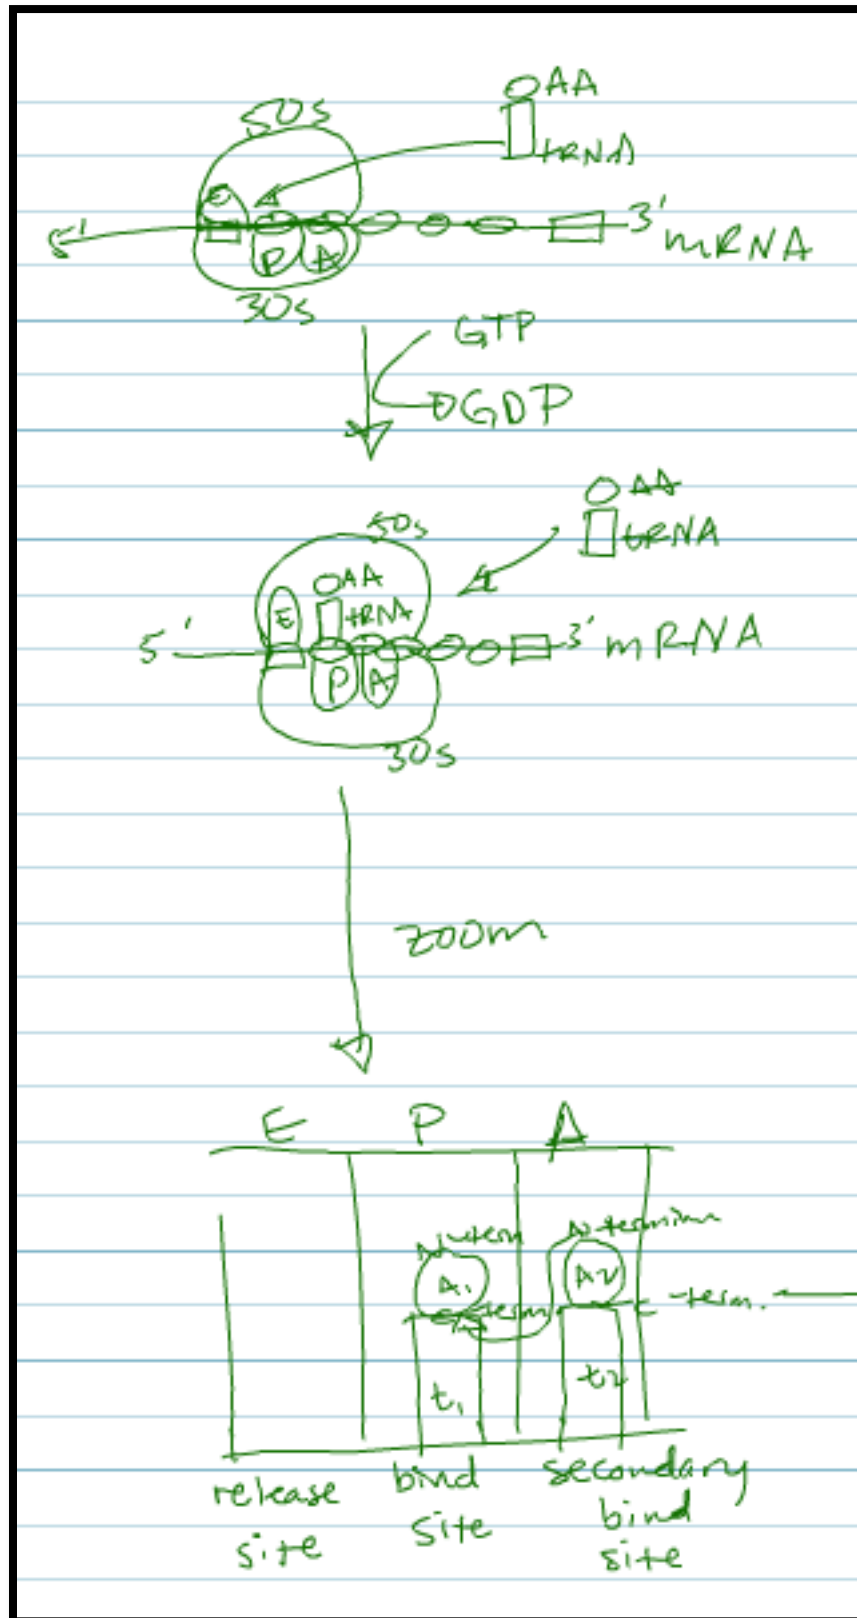 50s
AA
tRNA
E
5'
3' mRNA
P A
30s
GTP
GDP
AA
tRNA
50s
AA
tRNA
E
5'
3' mRNA
P A
30s
zoom
E P A
N-term N-terminus
A1 A2
C-term C-term.
t1 t2
release site
bind site
secondary bind site